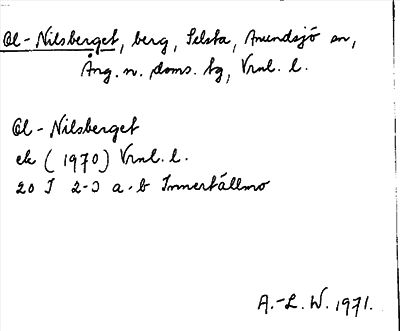 Ol-Nilsberget, berg, Selsta, Anundsjö sn,
Ång. n. doms. tg, Vrnl. l.
Ol-Nilsberget
ek (1970) Vrnl. l.
20 I 2-3 a-b Innertällmo
A.-L. W. 1971.